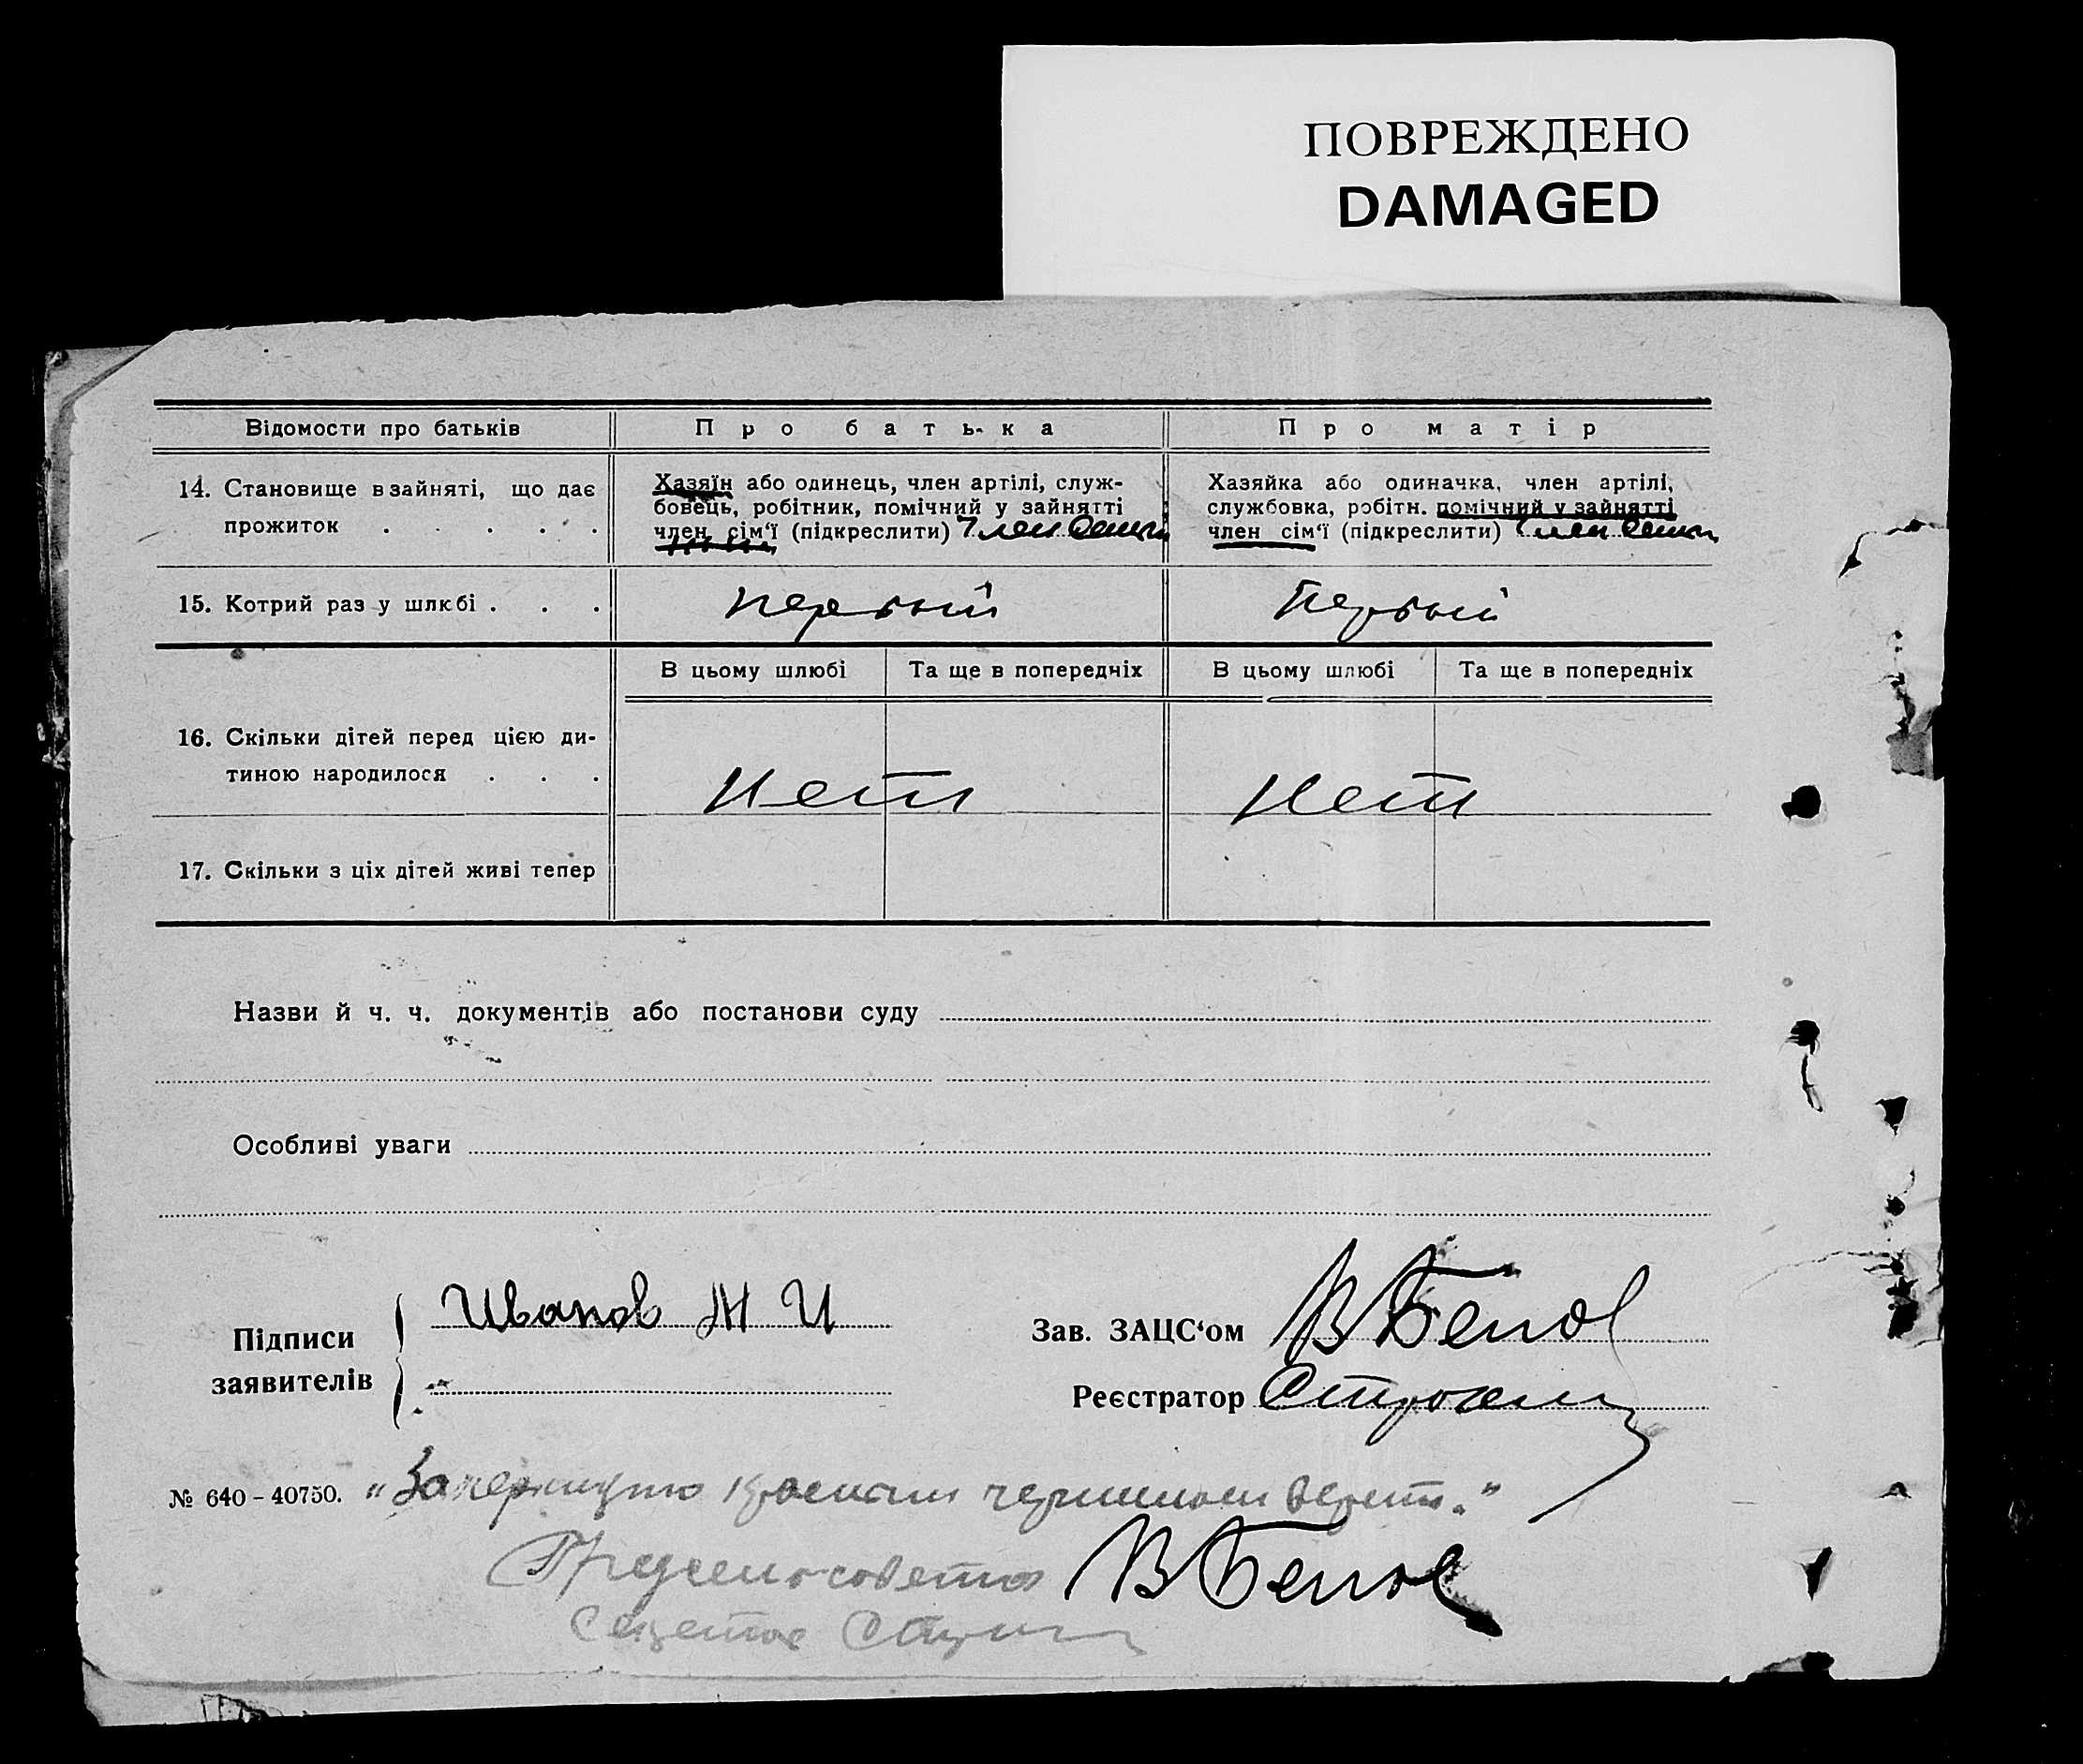 ПОВРЕЖДЕНО
DAMAGED
Відомости про батьків
Про батька
Про матір
14. Становище в зайняті, що дає
прожиток . . . .
Хазяїн або одинець, член артілі, служ-
бовець, робітник, помічний у зайнятті
член сім‘ї (підкреслити) Член семи
Хазяйка або одиначка, член артілі,
службовка, робітн. помічний у зайнятті
член сім‘ї (підкреслити) член семи
15. Котрий раз у шлюбі . . .
первый
Первый
В цьому шлюбі
Та ще в попередніх
В цьому шлюбі
Та ще в попередніх
16. Скільки дітей перед цією ди-
тиною народилося . . .
Нет
Нет
17. Скільки з ціх дітей живі тепер
Назви й ч. ч. документів або постанови суду
Особливі уваги
Підписи
заявителів
Иванов М И
Зав. ЗАЦС‘ом
В Белов
Реєстратор
№ 640 – 40750.
"Зачеркнуто красными чернилами верить."
Предсельсовета В Белов